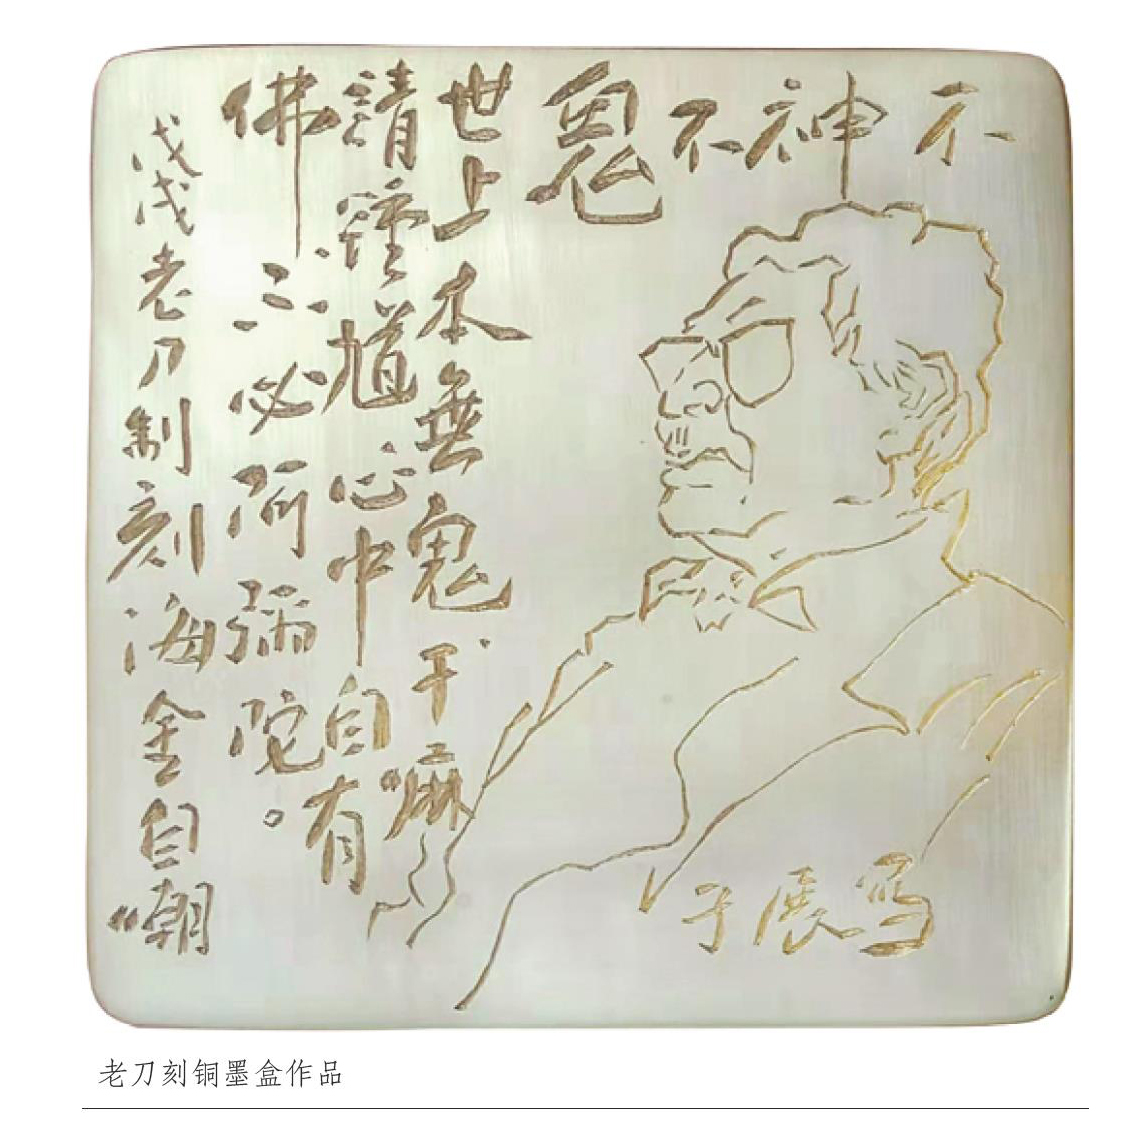 不神不鬼
世上本無鬼干嘛
請鍾馗心中自有
佛不必阿彌陀。
戊戌老刀制刻海金自嘲
子展写
老刀刻铜墨盒作品